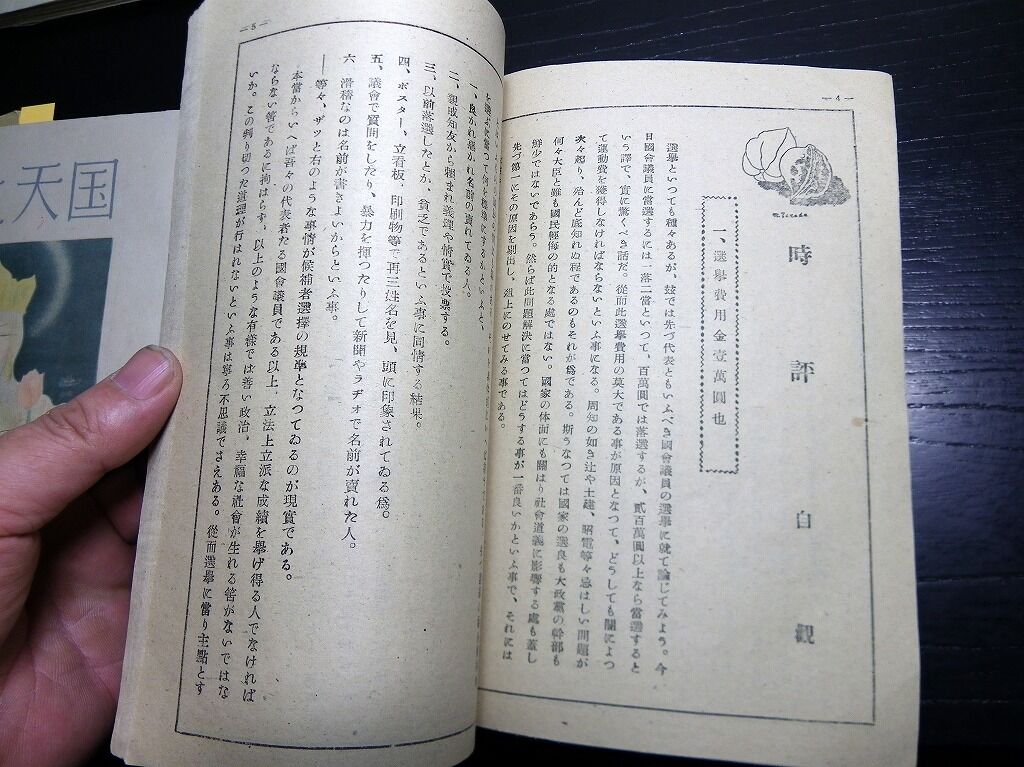 — 4 —
時評
自観
一、選擧費用金壹萬圓也
選擧といつても種々あるが、玆では先づ代表ともいふべき國會議員の選擧に就て論じてみよう。今
日國會議員に當選するには一落二當といつて、百萬圓では落選するが、貳百萬圓以上なら當選すると
いう譯で、實に驚くべき話だ。從而此選擧費用の莫大である事が原因となつて、どうしても闇によつ
て運動費を獲得しなければならないといふ事になる。周知の如き辻や土建、昭電等々忌はしい問題が
次々起り、殆んど底知れぬ程であるのもそれが爲である。斯うなつては國家の選良も大政黨の幹部も
何々大臣と雖も國民輕侮の的となる處ではない。國家の体面にも關はり社會道義に影響する處も蓋し
鮮少ではないであらう。然らば此問題解決に當つてはどうする事が一番良いかといふ事で、それには
先づ第一にその原因を剔出し、俎上にのせてみる事である。
— 5 —
一、良かれ惡かれ名前の賣れてゐる人。
二、親戚知友から頼まれ義理や情實で投票する。
三、以前落選したとか、貧乏であるといふ事に同情する結果。
四、ポスター、立看板、印刷物等で再三姓名を見、頭に印象されてゐる爲。
五、議會で質問をしたり、暴力を揮つたりして新聞やラヂオで名前が賣れた人。
六、滑稽なのは名前が書きよいからといふ事。
──等々、ザッと右のような事情が候補者選擇の規準となつてゐるのが現實である。
本當からいへば吾々の代表者たる國會議員である以上、立法上立派な成績を擧げ得る人でなければ
ならない筈であるに拘はらず、以上のような有樣では善い政治、幸福な社會が生れる筈がないではな
いか。この判り切つた道理が行はれないといふ事は寧ろ不思議でさえある。從而選擧に當り主點とす
天国